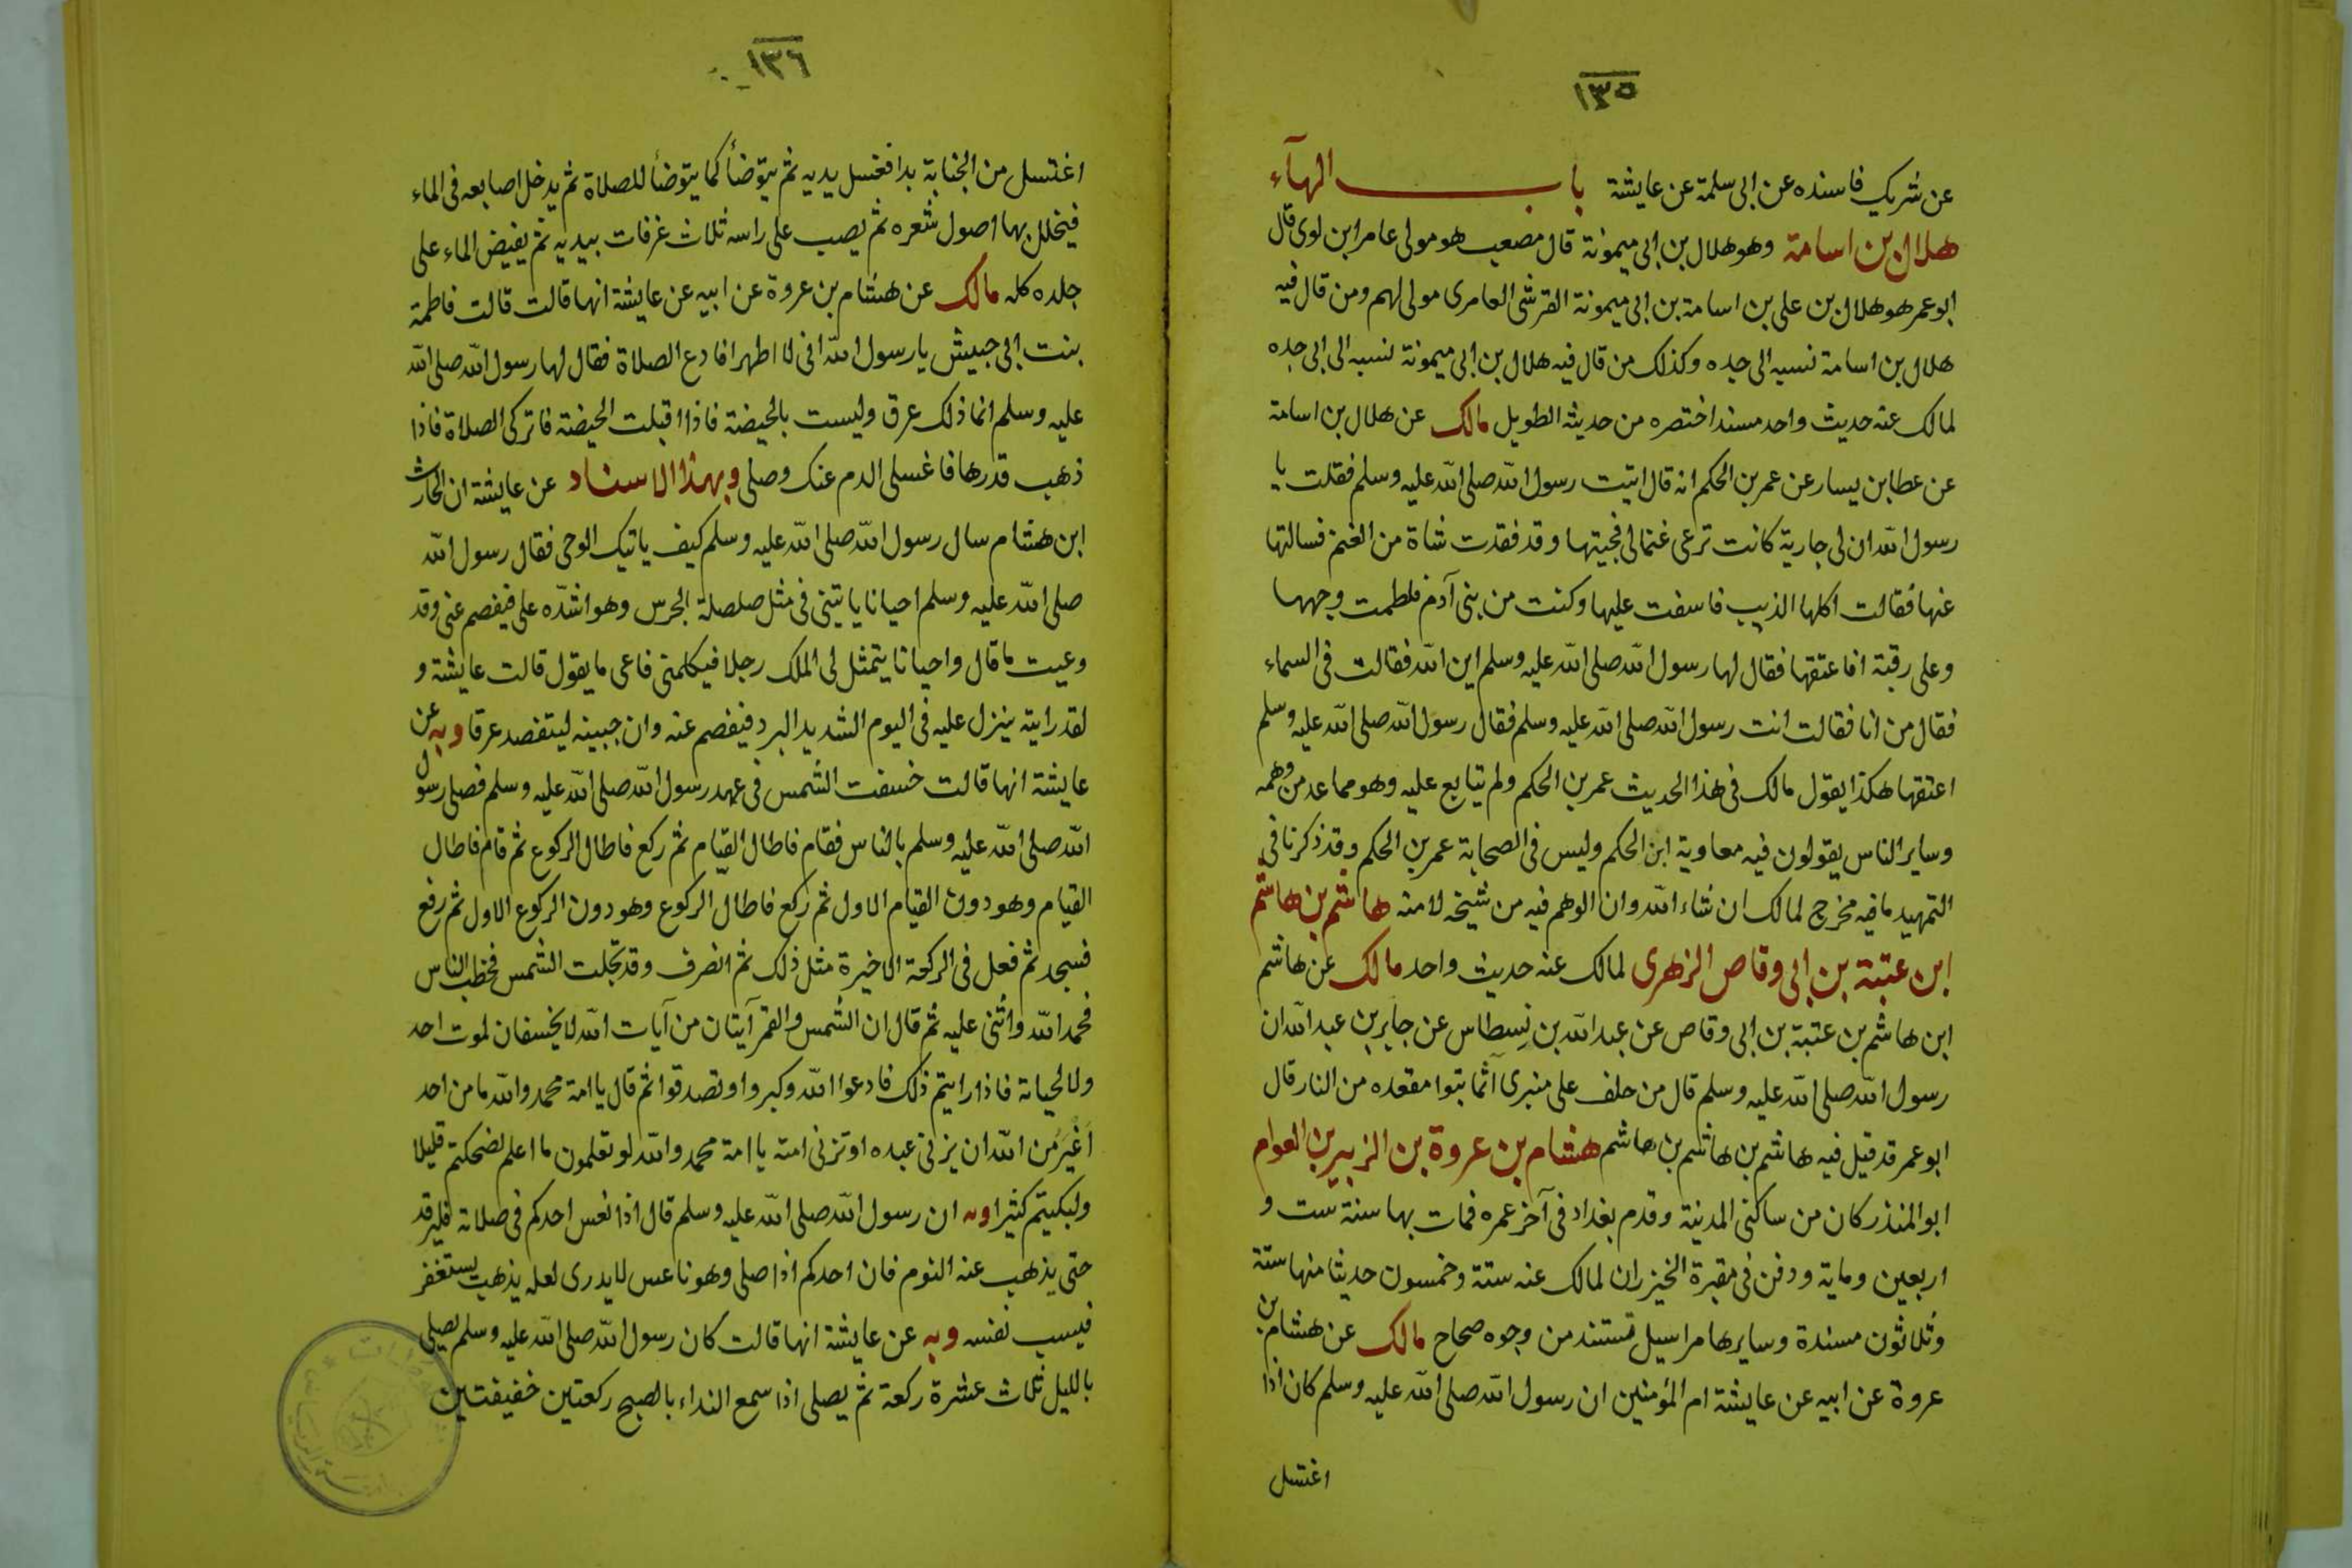 ١٣٥
عن شريك فاسنده عن ابى سلمة عن عايشة باب الهآء
هلال بن اسامة وهو هلال بن ابى ميمونة قال مصعب هو مولى عامر ابن لوى قال
ابو عمر هو هلال بن على بن اسامة بن ابى ميمونة القرشى العامرى مولى لهم ومن قال فيه
هلال بن اسامة نسبه الى جده وكذلك من قال فيه هلال بن ابى ميمونة نسبه الى ابى جده
لمالك عنه حديث واحد مسند اختصره من حديثه الطويل مالك عن هلال بن اسامة
عن عطا بن يسار عن عمر بن الحكم انه قال اتيت رسول الله صلى الله عليه وسلم فقلت يا
رسول الله ان لى جارية كانت ترعى غنما لى فجيتها وقد فقدت شاة من الغنم فسالتها
عنها فقالت اكلها الذيب فاسفت عليها وكنت من بنى آدم فلطمت وجهها
وعلى رقبة افاعتقها فقال لها رسول الله صلى الله عليه وسلم اين الله فقالت فى السماء
فقال من انا فقالت انت رسول الله صلى الله عليه وسلم فقال رسول الله صلى الله عليه وسلم
اعتقها هكذا يقول مالك فى هذا الحديث عمر بن الحكم ولم يتابع عليه وهو مما عد من وهمه
وساير الناس يقولون فيه معاوية ابن الحكم وليس فى الصحابة عمر بن الحكم وقد ذكرنا فى
التمهيد ما فيه مخرج لمالك ان شاء الله وان الوهم فيه من شيخه لا منه هاشم بن هاشم
ابن عتبة بن ابى وقاص الزهرى لمالك عنه حديث واحد مالك عن هاشم
ابن هاشم بن عتبة بن ابى وقاص عن عبد الله بن نِسطاس عن جابر بن عبد الله ان
رسول الله صلى الله عليه وسلم قال من حلف على منبرى آثما تبوا مقعده من النار قال
ابو عمر قد قيل فيه هاشم بن هاشم بن هاشم هشام بن عروة بن الزبير بن العوام
ابو المنذر كان من ساكنى المدينة وقدم بغداد فى آخر عمره فمات بها سنة ست و
اربعين وماية ودفن فى مقبرة الخيزران لمالك عنه ستة وخمسون حديثا منها ستة
وثلاثون مسندة وسايرها مراسيل تستند من وجوه صحاح مالك عن هشام بن
عروة عن ابيه عن عايشة ام المؤمنين ان رسول الله صلى الله عليه وسلم كان اذا
اغتسل
١٣٦
اغتسل من الجنابة بدا فغسل يديه ثم يتوضأ كما يتوضأ للصلاة ثم يدخل اصابعه فى الماء
فيخلل بها اصول شعره ثم يصب على راسه ثلاث غرفات بيديه ثم يفيض الماء على
جلده كله مالك عن هشام بن عروة عن ابيه عن عايشة انها قالت قالت فاطمة
بنت ابى حبيش يا رسول الله انى لا اطهر افادع الصلاة فقال لها رسول الله صلى الله
عليه وسلم انما ذلك عرق وليست بالحيضة فاذا اقبلت الحيضة فاتركى الصلاة فاذا
ذهب قدرها فاغسلى الدم عنك وصلى وبهذا الاسناد عن عايشة ان الحارث
ابن هشام سال رسول الله صلى الله عليه وسلم كيف ياتيك الوحى فقال رسول الله
صلى الله عليه وسلم احيانا ياتينى فى مثل صلصلة الجرس وهو اشدّه على فيفصم عنى وقد
وعيت ما قال واحيانا يتمثل لى الملك رجلا فيكلمنى فاعى ما يقول قالت عايشة و
لقد رايته ينزل عليه فى اليوم الشديد البرد فيفصم عنه وان جبينه ليتفصد عرقا وبه عن
عايشة انها قالت خسفت الشمس فى عهد رسول الله صلى الله عليه وسلم فصلى رسول
الله صلى الله عليه وسلم بالناس فقام فاطال القيام ثم ركع فاطال الركوع ثم قام فاطال
القيام وهو دون القيام الاول ثم ركع فاطال الركوع وهو دون الركوع الاول ثم رفع
فسجد ثم فعل فى الركعة الاخيرة مثل ذلك ثم انصرف وقد تجلت الشمس فخطب الناس
فحمد الله واثنى عليه ثم قال ان الشمس والقمر آيتان من آيات الله لا يخسفان لموت احد
ولا لحياته فاذا رايتم ذلك فادعوا الله وكبروا وتصدقوا ثم قال يا امة محمد والله ما من احد
اَغْيَرُ من الله ان يزنى عبده او تزنى امته يا امة محمد والله لو تعلمون ما اعلم لضحكتم قليلا
ولبكيتم كثيرا وبه ان رسول الله صلى الله عليه وسلم قال اذا نعس احدكم فى صلاته فليرقد
حتى يذهب عنه النوم فان احدكم اذا صلى وهو ناعس لا يدرى لعله يذهب يستغفر
فيسب نفسه وبه عن عايشة انها قالت كان رسول الله صلى الله عليه وسلم يصلى
بالليل ثلاث عشرة ركعة ثم يصلى اذا سمع النداء بالصبح ركعتين خفيفتين